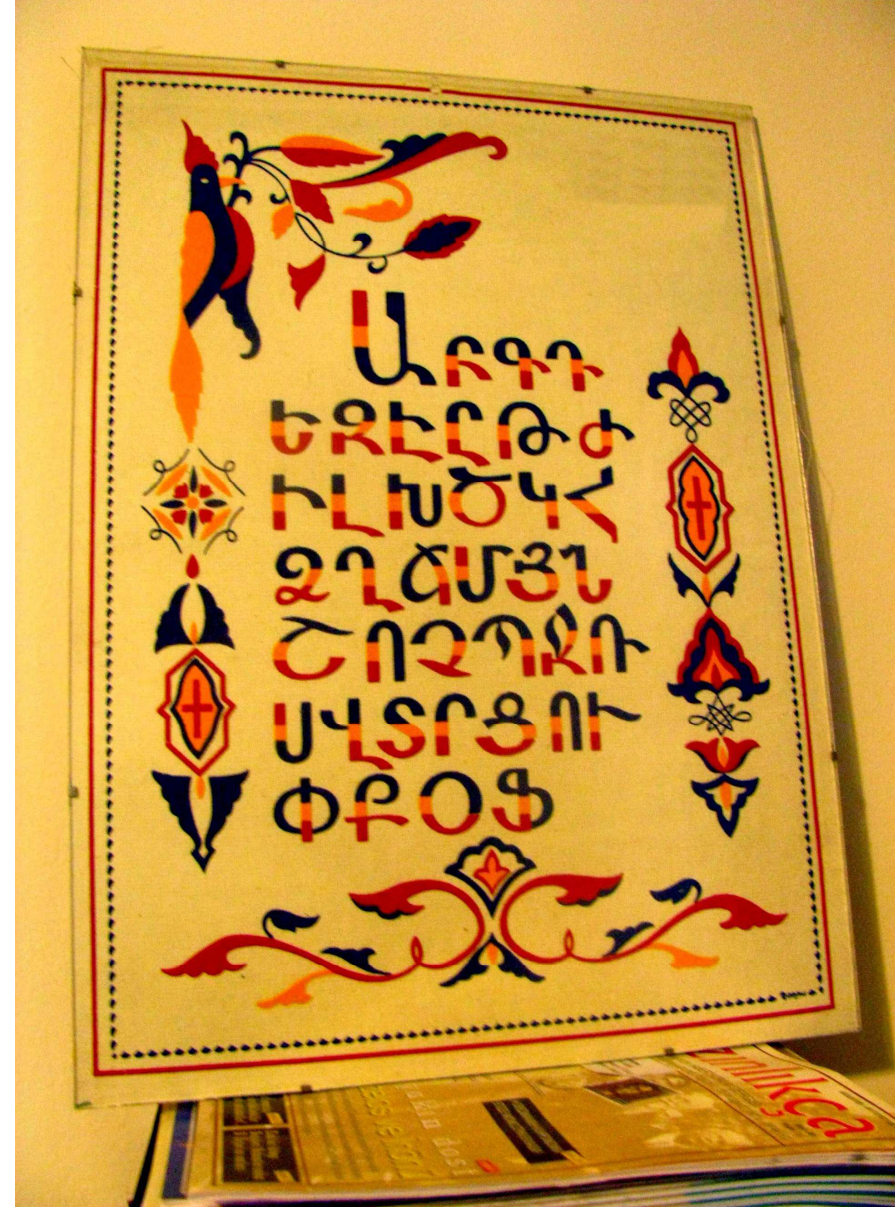 ԱԲԳԴ
ԵԶԷԸԹԺ
ԻԼԽԾԿՀ
ՁՂՃՄՅՆ
ՇՈՉՊՋՌ
ՍՎՏՐՑՈՒ
ՓՔՕՖ